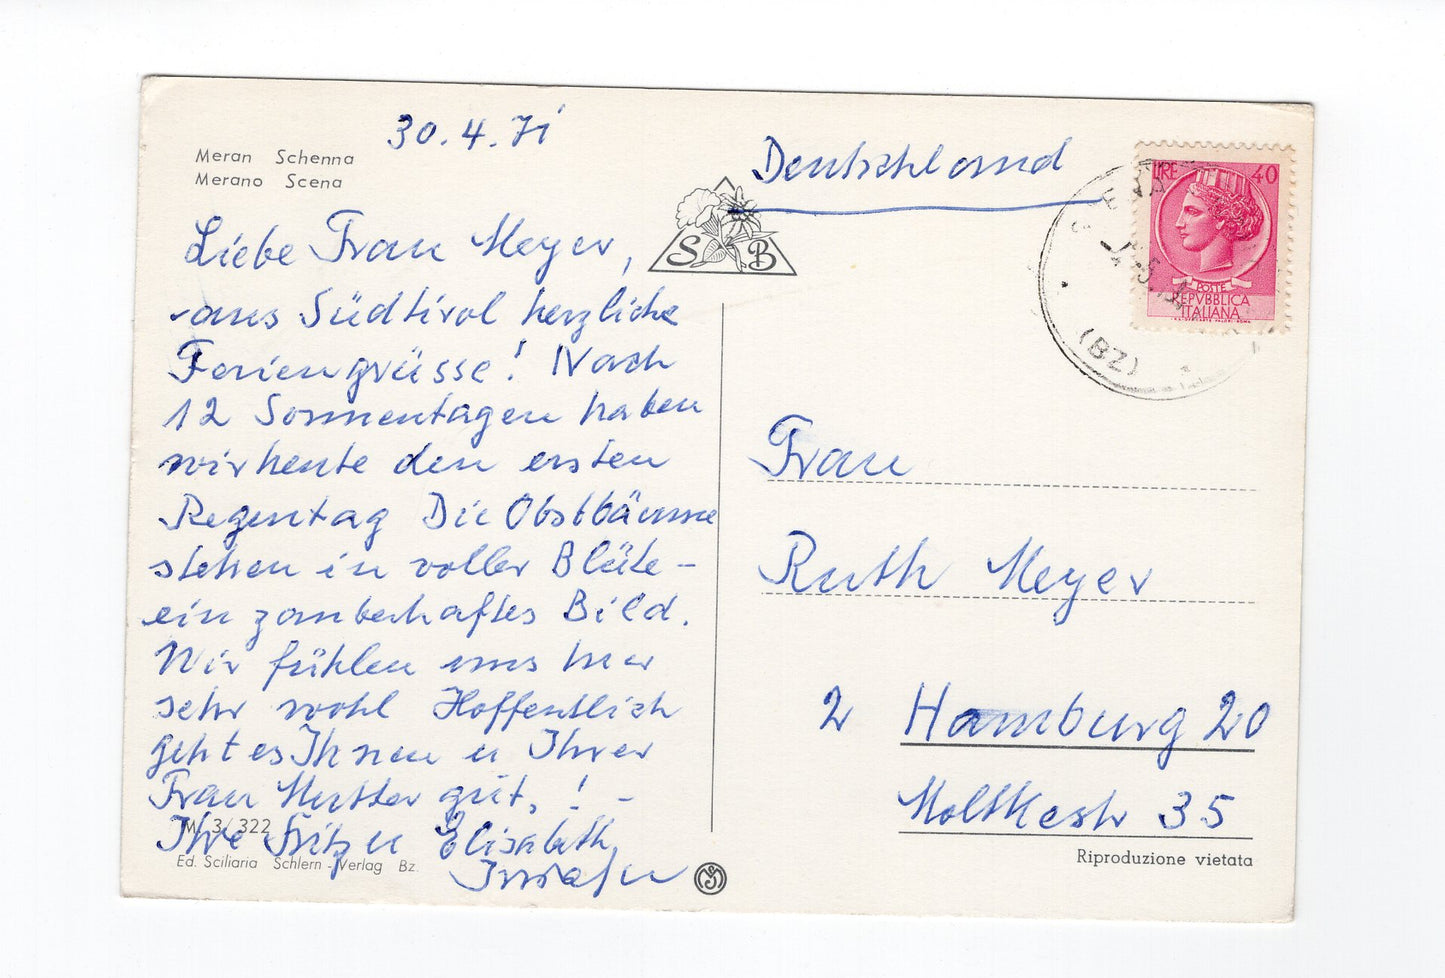 30.4.71
Meran Schenna
Merano Scena
Liebe Frau Meyer,
aus Südtirol herzliche
Feriengrüsse! Nach
12 Sonnentagen haben
wir heute den ersten
Regentag Die Obstbäume
stehen in voller Blüte -
ein zauberhaftes Bild.
Wir fühlen uns hier
sehr wohl Hoffentlich
geht es Ihnen u Ihrer
Frau Mutter gut, ! -
Ihre Fritz u Elisabeth
M 3/322
Ed. Sciliaria Schlern - Verlag Bz.
S B
Deutschland
LIRE 40
POSTE
REPVBBLICA
ITALIANA
(BZ)
Frau
Ruth Meyer
2 Hamburg 20
Moltkestr 35
Riproduzione vietata